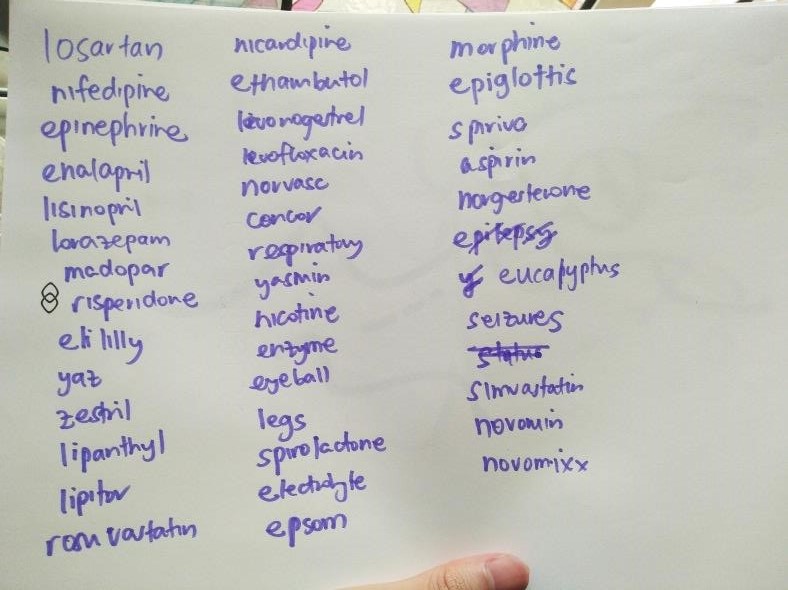 losartan
nifedipine
epinephrine
enalapril
lisinopril
lorazepam
madopar
risperidone
eli lilly
yaz
zestril
lipanthyl
lipitor
rosuvastatin
nicardipine
ethambutol
levonogestrel
levofloxacin
norvasc
concor
respiratory
yasmin
nicotine
enzyme
eyeball
legs
spirolactone
electrolyte
epsom
morphine
epiglottis
spiriva
aspirin
norgesterone
epilepsy
y eucalyptus
seizures
status
simvastatin
novomin
novomixx